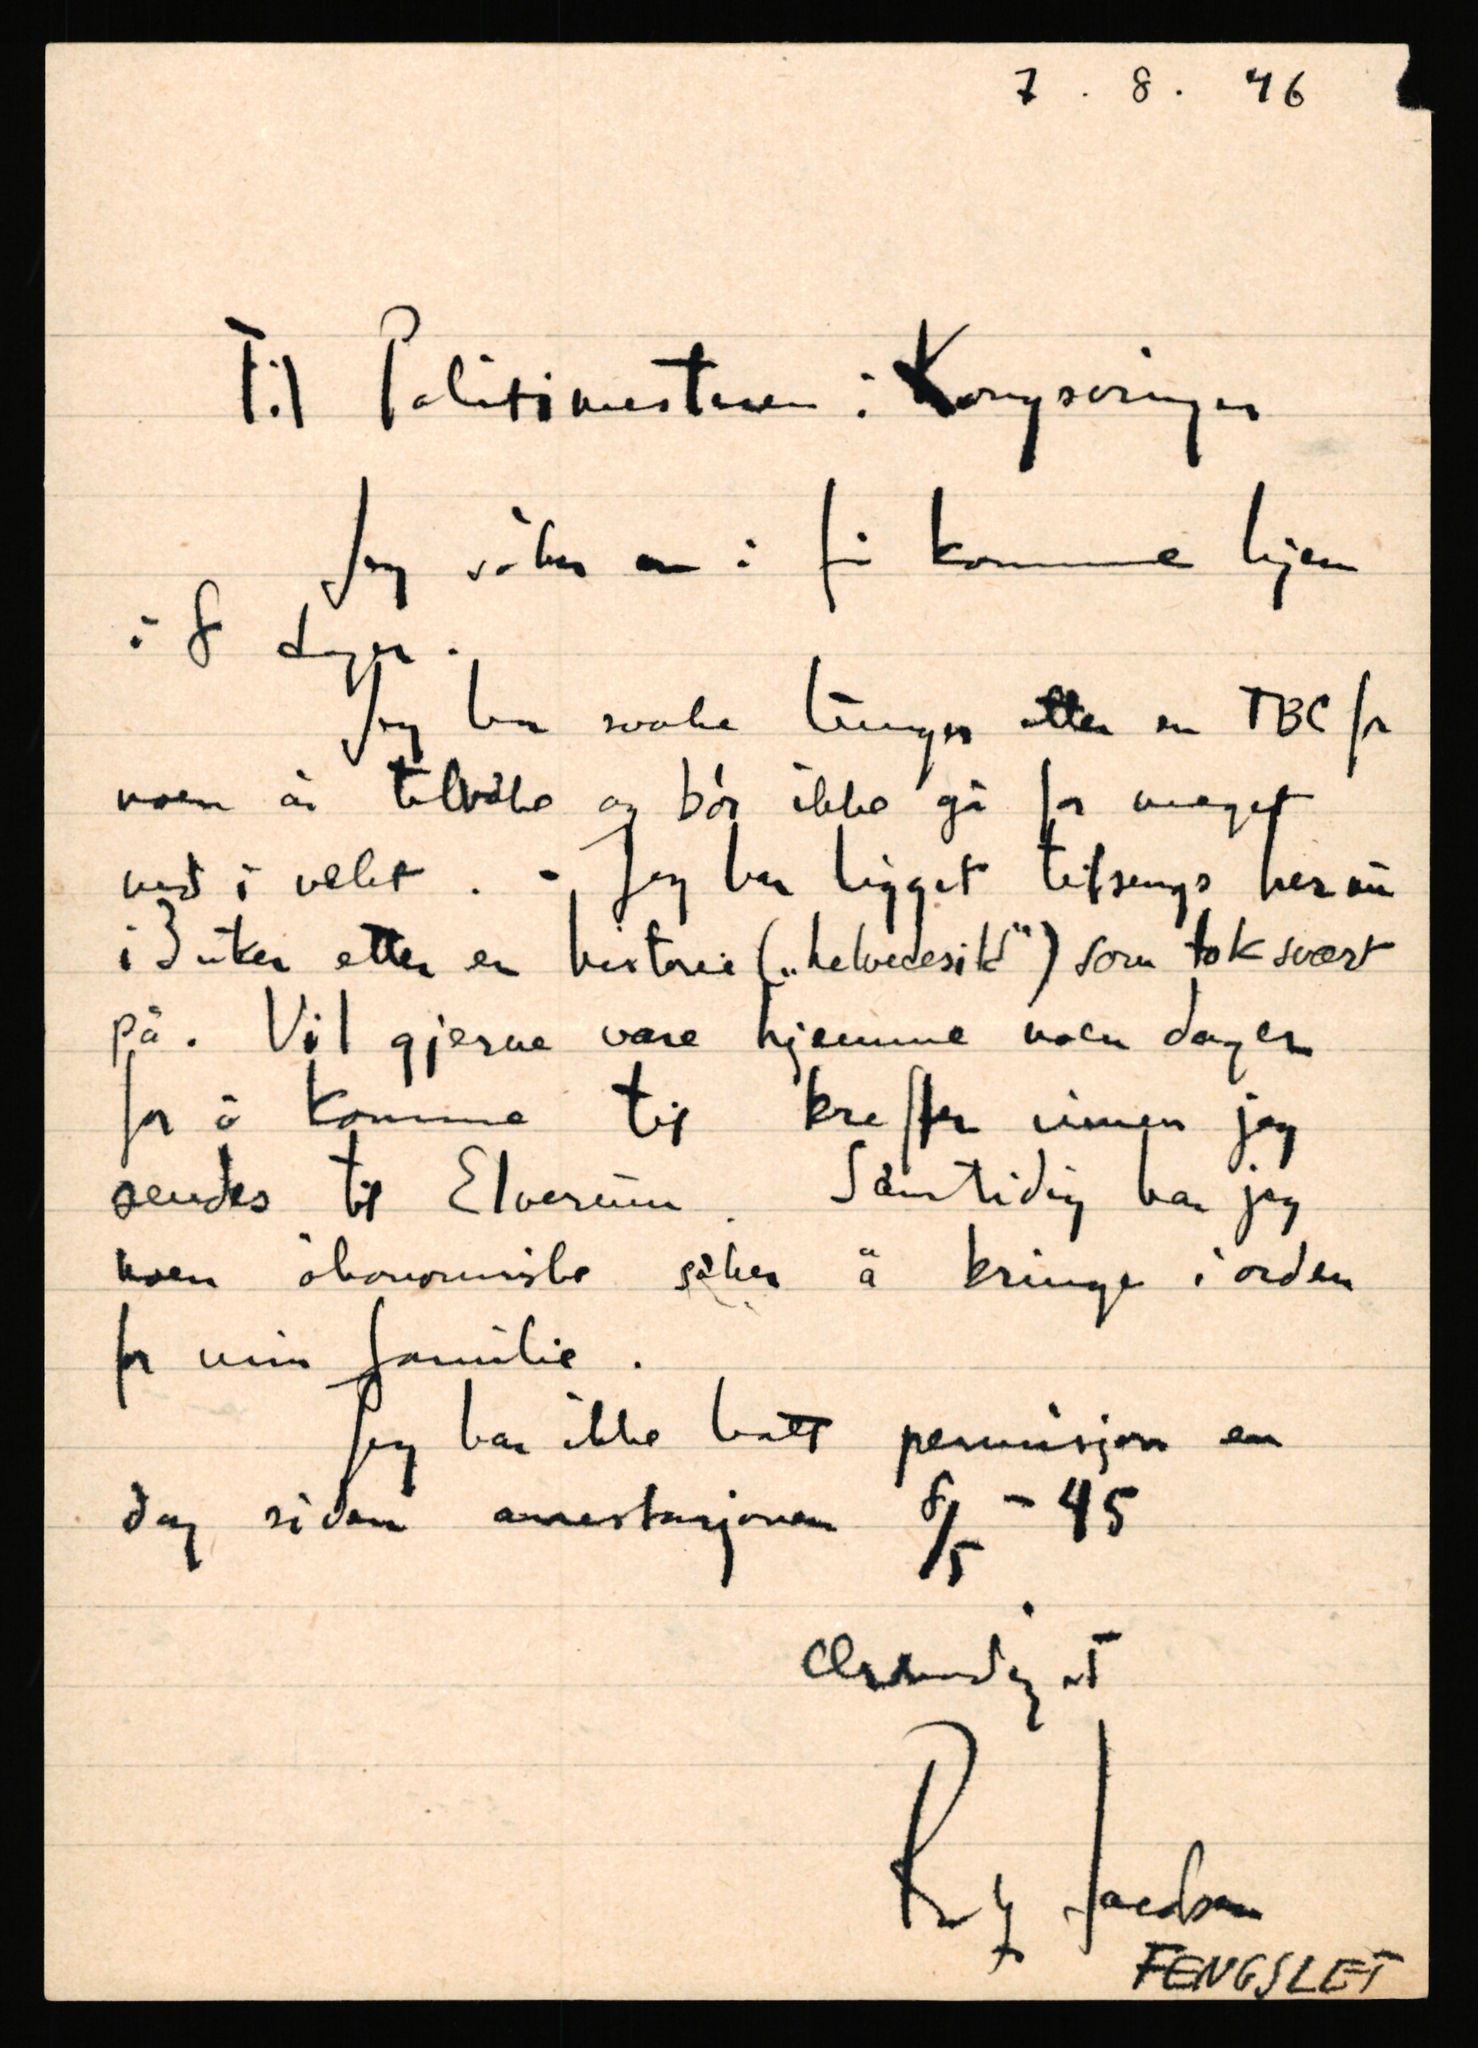 7. 8. 46
Til Politimesteren i Kongsvinger
Jeg söker om å få komme hjem
i 8 dager.
Jeg har svake lunger etter en TBC for
noen år tilbake og bör ikke gå for meget
ned i vekt. - Jeg har ligget tilsengs her nu
i 3 uker etter en historie („helvedesild") som tok svært
på. Vil gjerne være hjemme noen dager
for å komme til krefter innen jeg
sendes til Elverum. Samtidig har jeg
noen ökonomiske saker å bringe i orden
for min familie.
Jeg har ikke hatt permisjon en
dag siden arrestasjonen 8/5 - 45
Ærbødigst
Rolf Jacobsen
FENGSLET